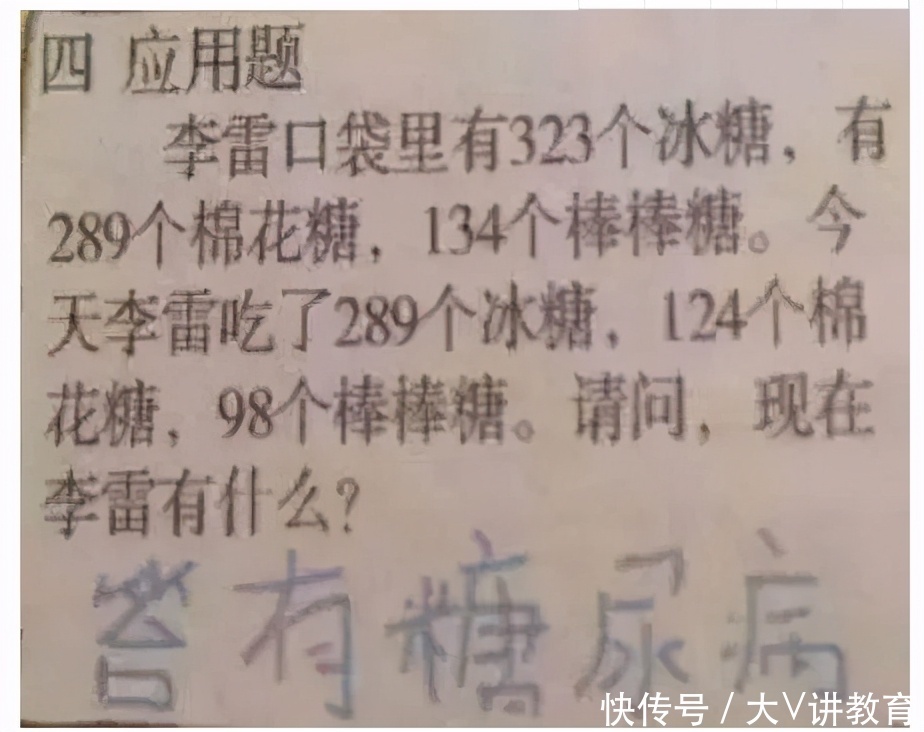 四 应用题
李雷口袋里有323个冰糖，有
289个棉花糖，134个棒棒糖。今
天李雷吃了289个冰糖，124个棉
花糖，98个棒棒糖。请问，现在
李雷有什么？
答有糖尿病
快传号 / 大V讲教育